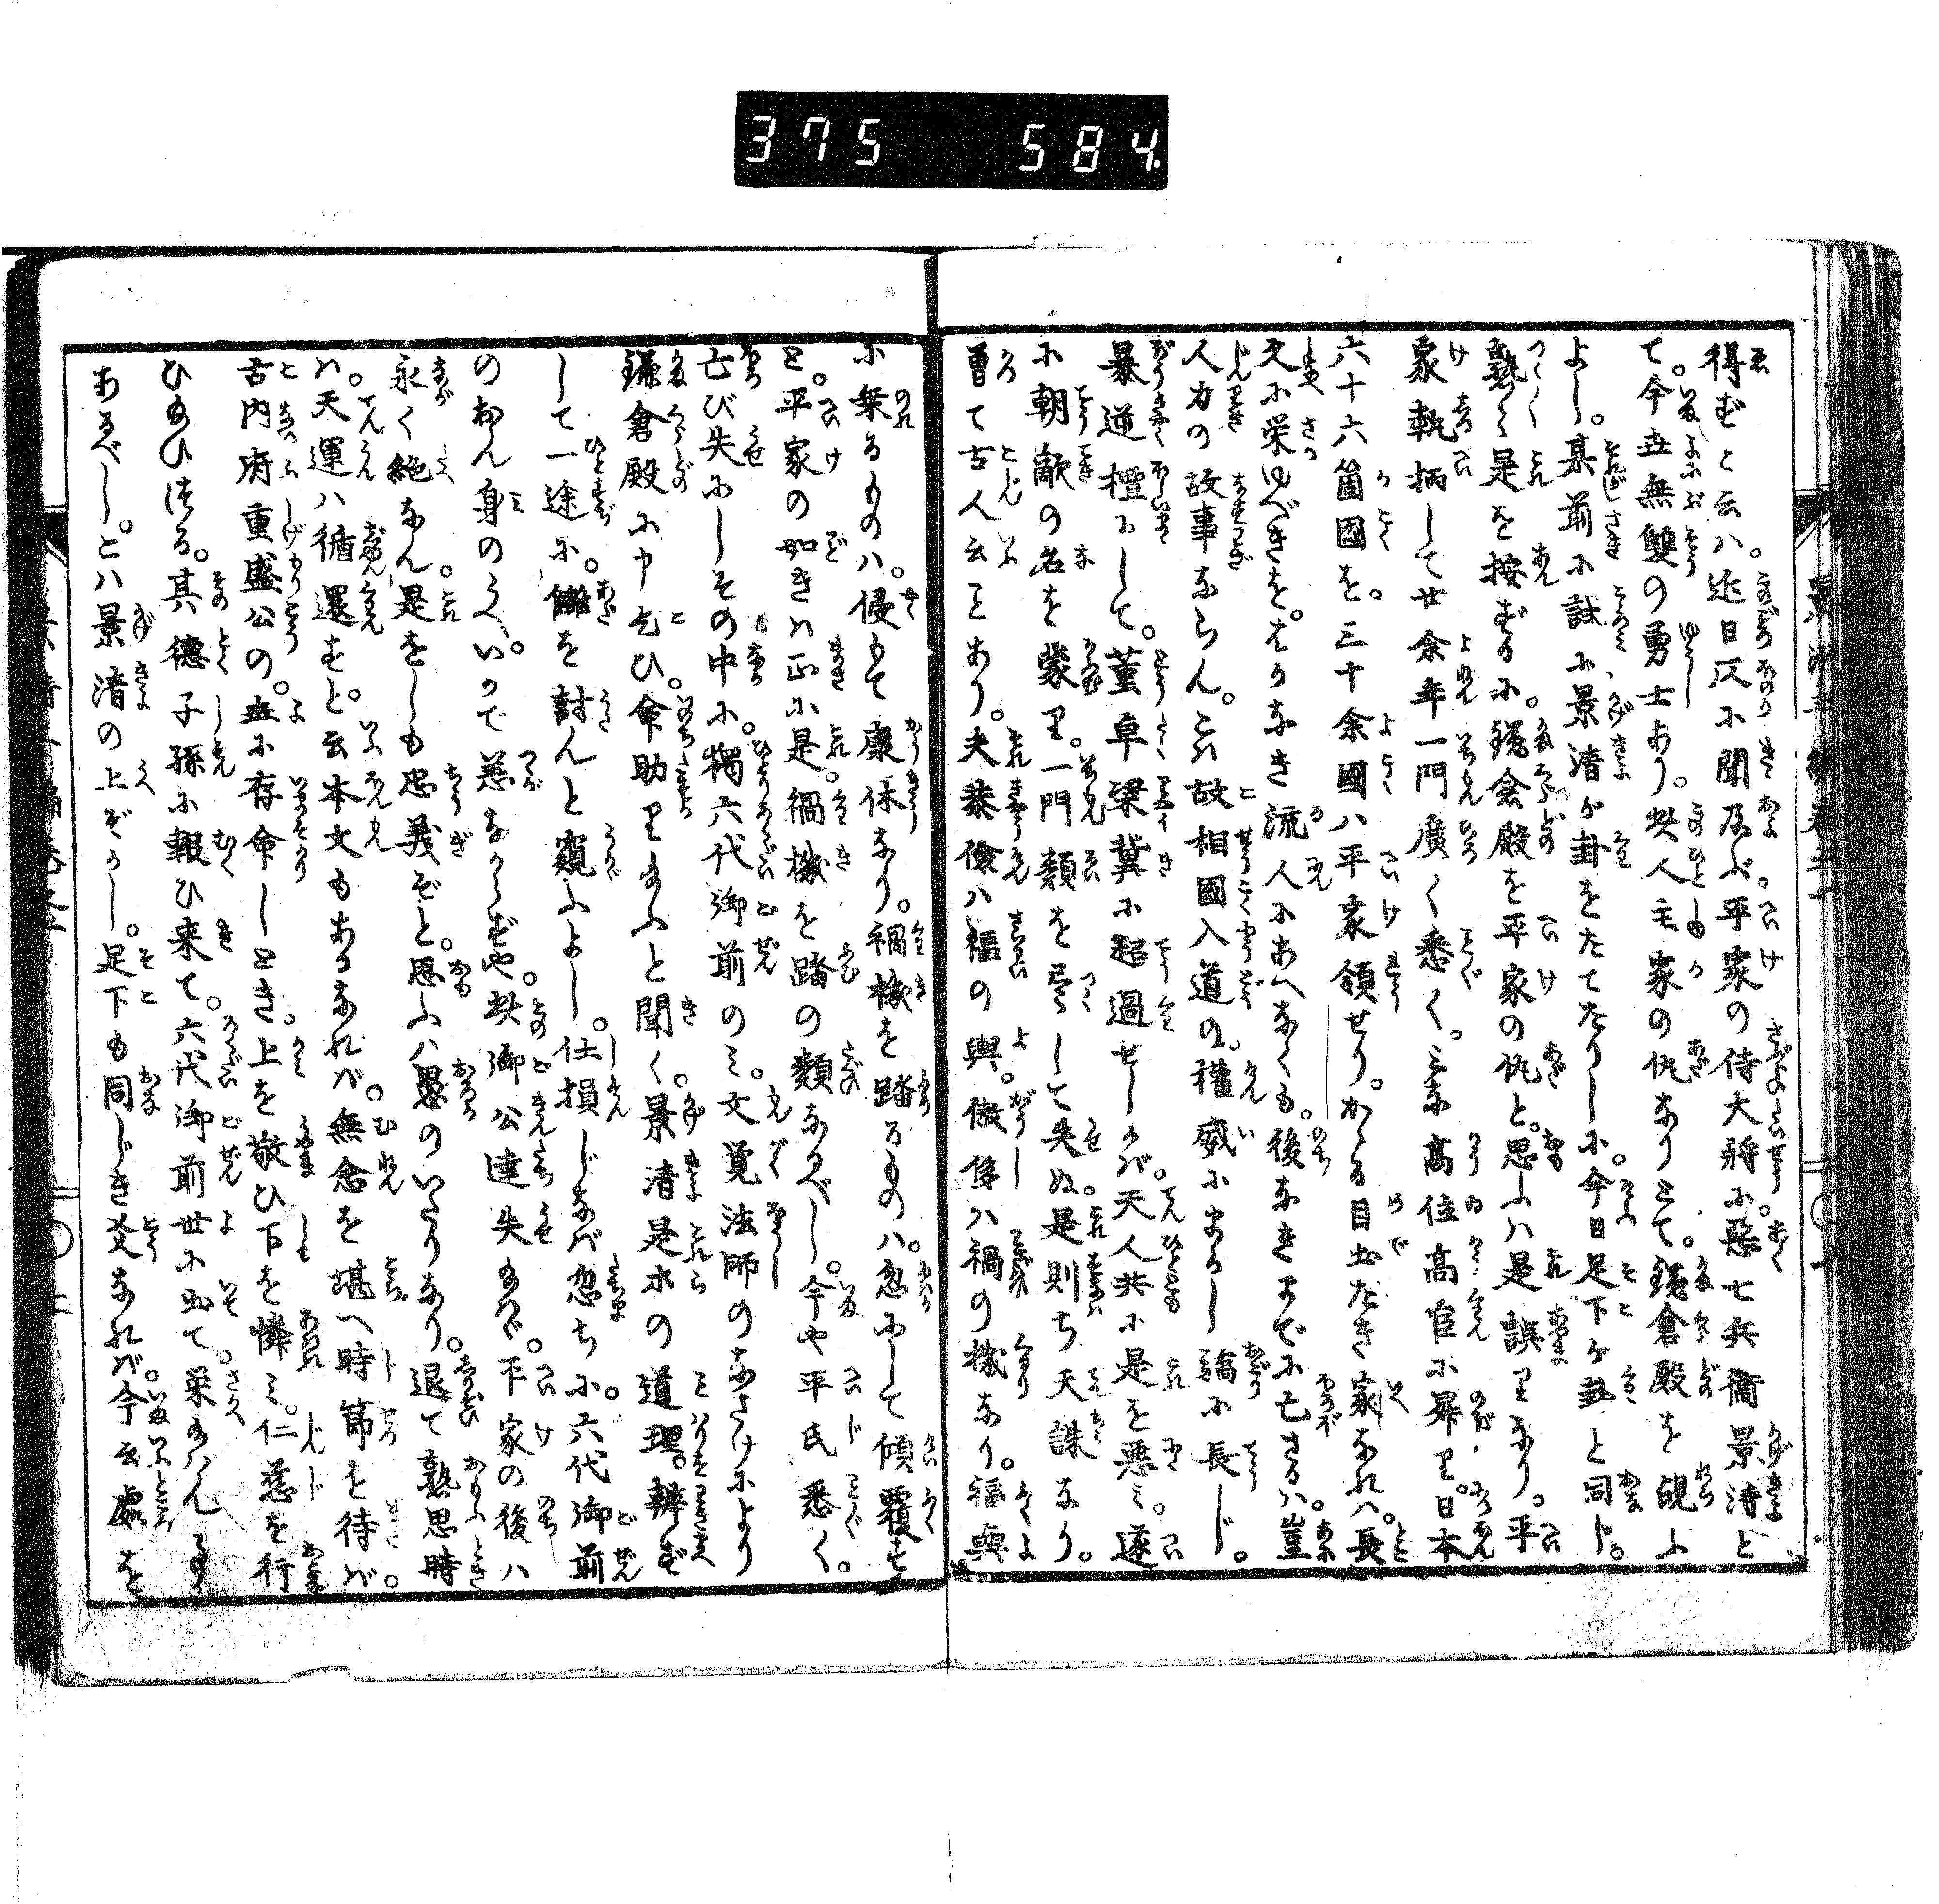 375 584.
得ずと云ハ。近日仄に聞及ぶ。平家の侍大將に。惡七兵衞景清と
て。今世無雙の勇士あり。此人主家の仇なりとて。鎌倉殿を覘ふ
よし。某前に試に景清が卦をたてたりしに。今日足下が卦と同じ。
熟〻是を按ずるに。鎌倉殿を平家の仇と。思ふハ是誤りなり。平
家執柄して廿余年一門廣く悉く。みな高位高官に昇り。日本
六十六箇國を。三十余國ハ平家領せり。かゝる目出たき家なれハ。長
久に栄ゆべきを。はかなき流人にあへなくも。後なきまでに亡さるハ。豈
人力の故事ならん。これ故相國入道の。權威にまかし驕に長じ。
暴逆檀にして。董卓梁冀に超過せしかバ。天人共に是を惡ミ。遂
に朝敵の名を蒙り。一門類を尽して失ぬ。是則ち天誅なり。
曽て古人云ことあり。夫恭儉ハ福の輿。傲侈ハ禍の機なり。福輿
に乗るものハ。優もて康休なり。禍機を踏るものハ。忽にして傾覆す
と。平家の如きハ正に是。禍機を踏の類なるべし。今や平氏悉く。
亡び失にしその中に。獨六代御前のミ。文覚法師のなさけにより
鎌倉殿に申乞ひ。命助り給ふと聞く。景清是木の道理。辨ず
して一途に。讎を討んと窺ふよし。仕損じなバ忽ち小。六代御前
のおん身のうへ。いかで恙なからずや。此御公達失給ハゞ。平家の後ハ
永く絶なん。是をしも忠義ぞと。思ふハ愚のいたりなり。退て熟思時
ハ。天運ハ循還すと。云本文もあるなれバ。無念を堪へ時節を待バ。
古内府重盛公の。世に存命しとき。上を敬ひ下を憐ミ。仁慈を行
ひ給ひける。其德子孫に報ひ来て。六代御前世に出て。栄給ハん事
あるべし。とハ景清の上ぞかし。足下も同じき爻なれバ。今云處を